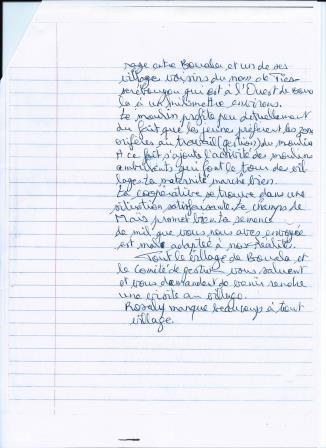 rage entre Bouala et un de ses
village voisins du nom de Ties-
serébougou qui est à l'Ouest de Boua
la à un kilomètre environs.
Le moulin profite peu actuellement
du fait que les jeunes préfèrent les zones
orifères au travail (gestion) du moulin
A ce fait s'ajoute l'activité des moulins
ambulants qui font le tour des vil
lages. La maternité marche bien.
La coopérative se trouve dans une
situation satisfaisante. Le champs de
Maïs promet bien. La semence
de mil que vous nous avez envoyée
est mal adaptée à nos réalités.
Tout le village de Bouala et
le Comité de gestion vous saluent
et vous demandent de venir rendre
une visite au village.
Rosaly manque beaucoups à tout
village.